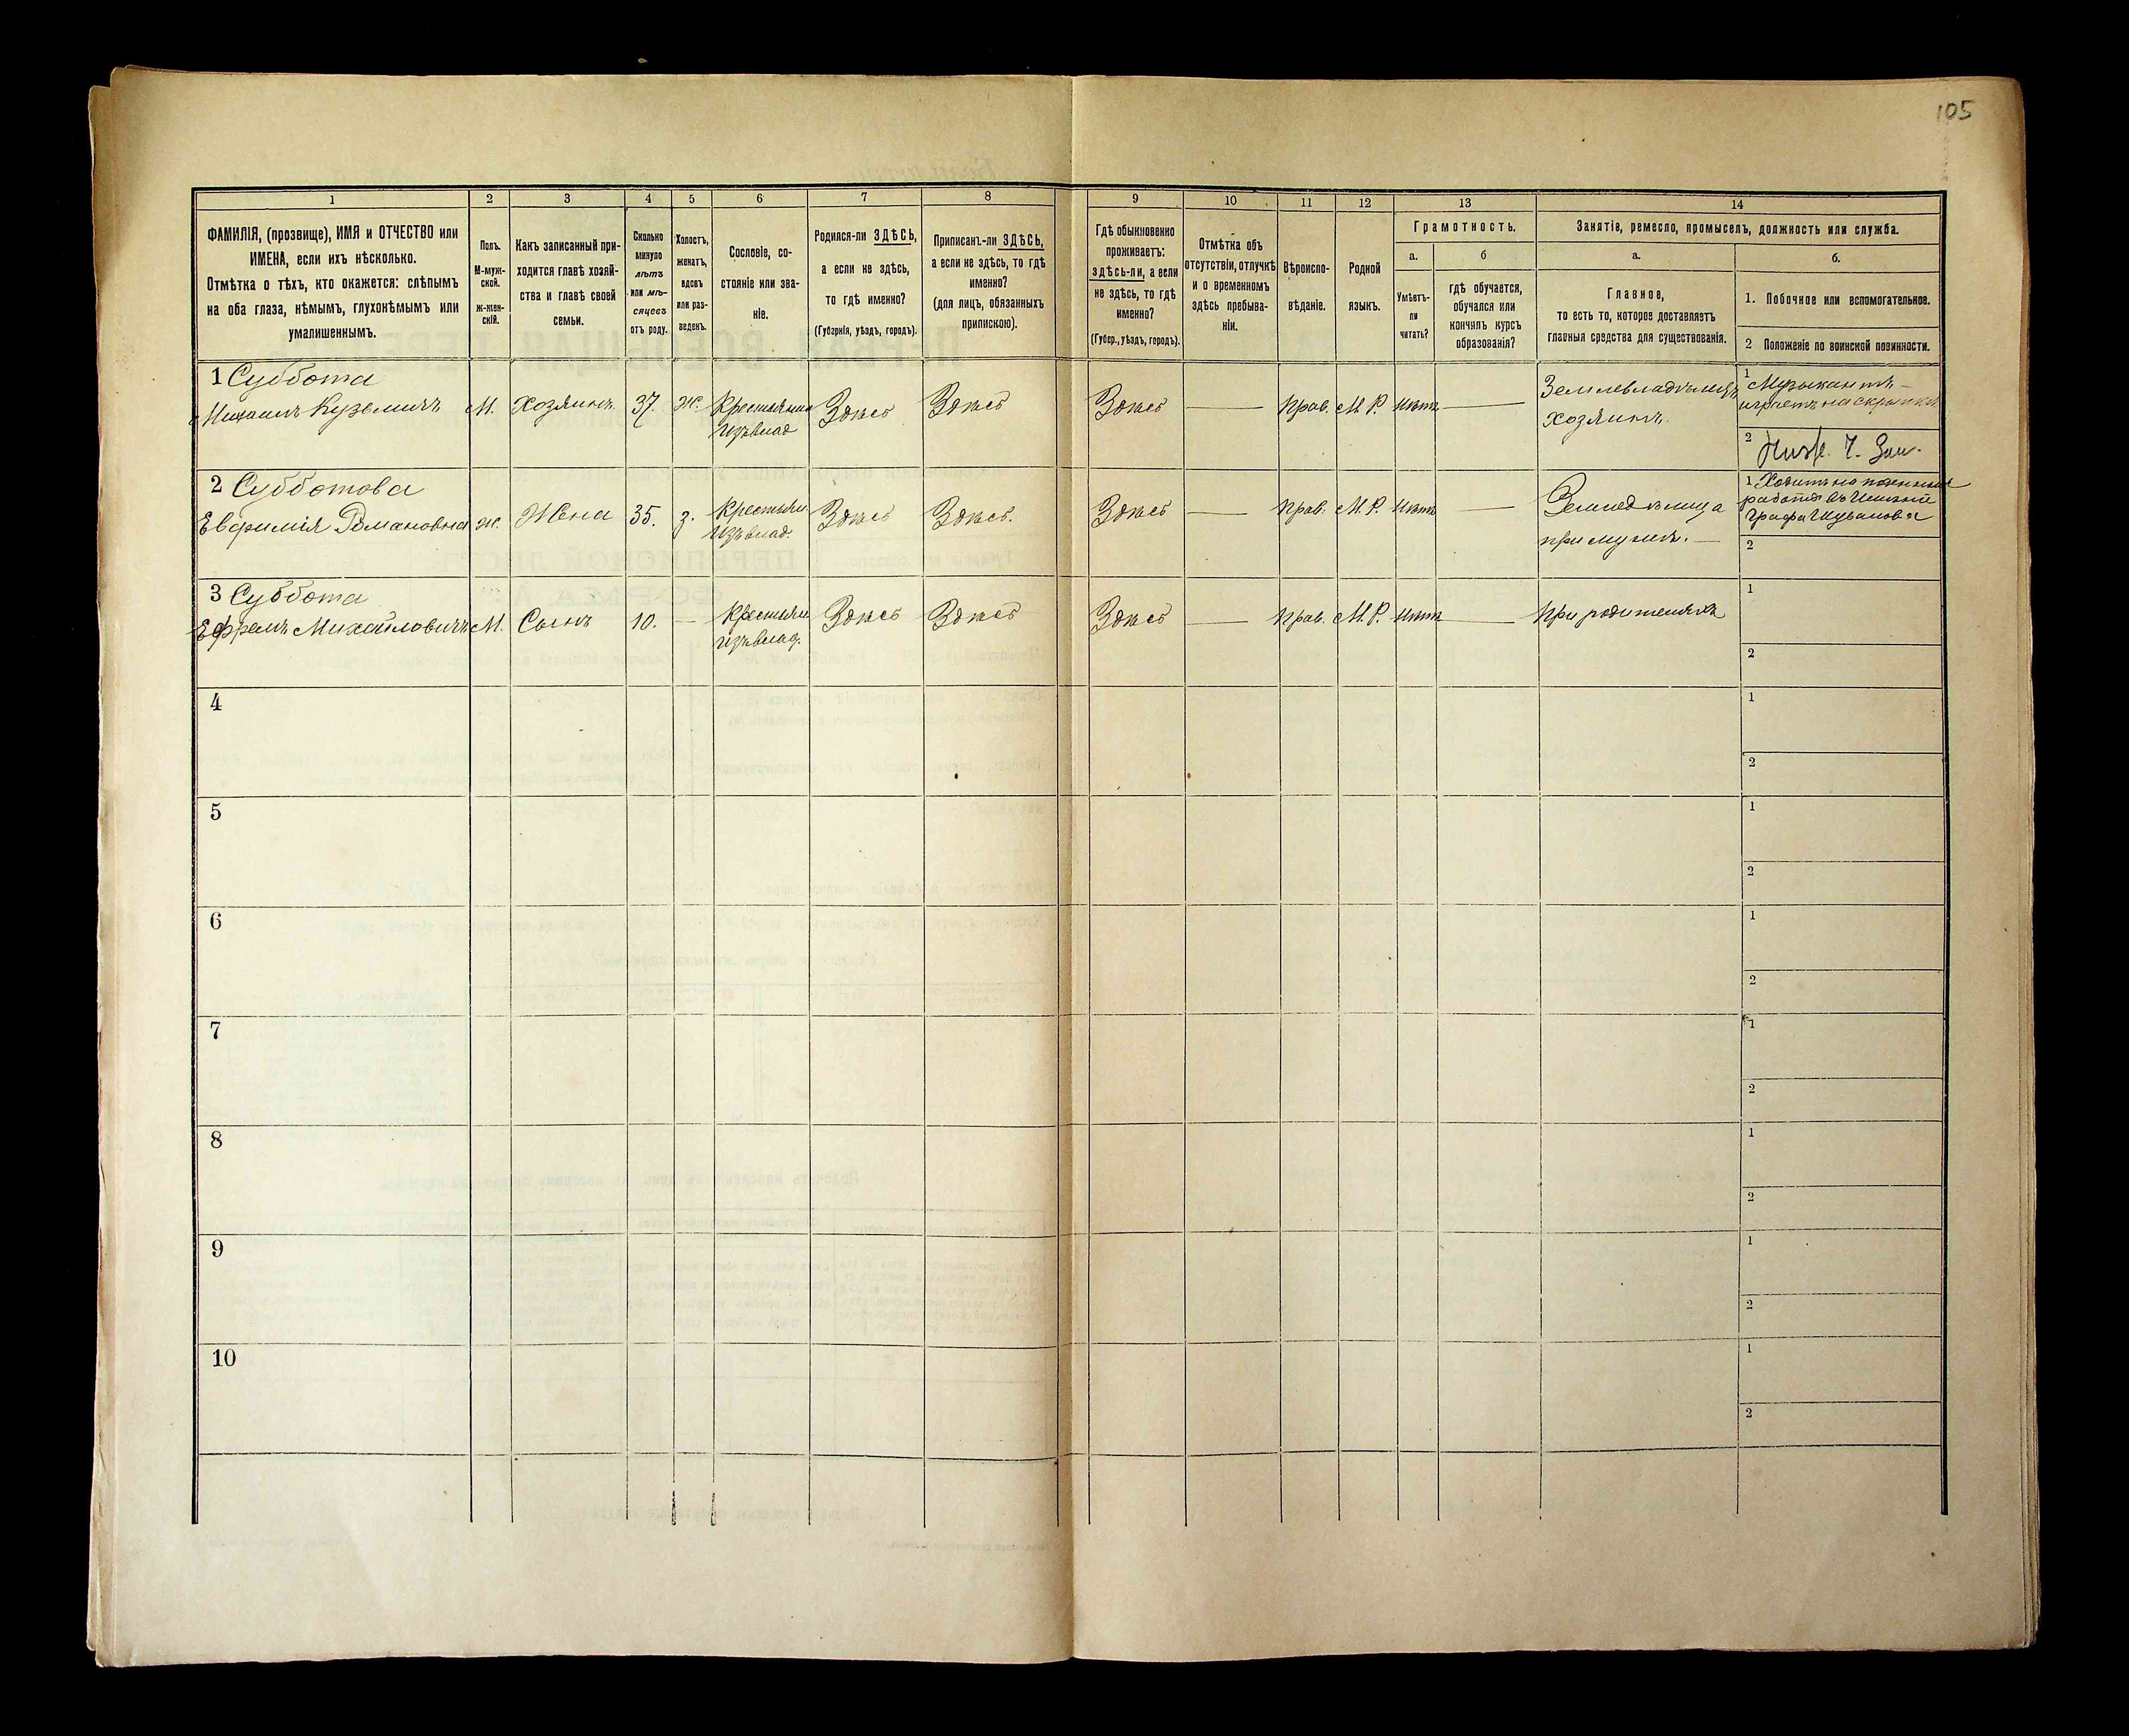 105
1
2
3
4
5
6
7
8
9
10
11
12
13
14
ФАМИЛІЯ, (прозвище), ИМЯ и ОТЧЕСТВО или
ИМЕНА, если ихъ нѣсколько.
Отмѣтка о тѣхъ, кто окажется: слѣпымъ
на оба глаза, нѣмымъ, глухонѣмымъ или
умалишеннымъ.
Полъ.
М-муж-
ской.
Ж-жен-
скій.
Какъ записанный при-
ходится главѣ хозяй-
ства и главѣ своей
семьи.
Сколько
минуло
лѣтъ
или мѣ-
сяцевъ
отъ роду.
Холостъ,
женатъ,
вдовъ
или раз-
веденъ.
Сословіе, со-
стояніе или зва-
ніе.
Родился-ли ЗДѢСЬ,
а если не здѣсь,
то гдѣ именно?
(Губернія, уѣздъ, городъ).
Приписанъ-ли ЗДѢСЬ,
а если не здѣсь, то гдѣ
именно?
(для лицъ, обязанныхъ
припискою).
Гдѣ обыкновенно
проживаетъ:
здѣсь-ли, а если
не здѣсь, то гдѣ
именно?
(Губер., уѣздъ, городъ).
Отмѣтка объ
отсутствіи, отлучкѣ
и о временномъ
здѣсь пребыва-
ніи.
Вѣроиспо-
вѣданіе.
Родной
языкъ.
Грамотность.
а.
Умѣетъ-
ли
читать?
б
гдѣ обучается,
обучался или
кончилъ курсъ
образованія?
Занятіе, ремесло, промыселъ, должность или служба.
а.
Главное,
то есть то, которое доставляетъ
главныя средства для существованія.
б.
1. Побочное или вспомогательное.
2 Положеніе по воинской повинности.
1 Суббота
Михаилъ Кузьмичъ
М.
Хозяинъ.
37.
Ж.
Крестьянин
Изъ влад
Здѣсь
Здѣсь
Здѣсь
—
Прав.
М. Р.
Нѣтъ
—
Землевладѣлецъ
Хозяинъ.
1 Музыкантъ —
играетъ на скрыпкѣ
2
2 Субботова
Евфимія Романовна
Ж.
Жена
35.
З.
Крестьян
Изъ влад.
Здѣсь
Здѣсь.
Здѣсь
—
Прав.
М. Р.
Нѣтъ
—
Землед
при мужѣ. —
1 Ходитъ на
работы въ
Графа Шувалова
2
3 Суббота
Ефремъ Михайловичъ
М.
Сынъ
10.
—
Крестьян
Изъ влад.
Здѣсь
Здѣсь
Здѣсь
—
Прав.
М. Р.
Нѣтъ
—
При родителяхъ
1
2
4
1
2
5
1
2
6
1
2
7
1
2
8
1
2
9
1
2
10
1
2